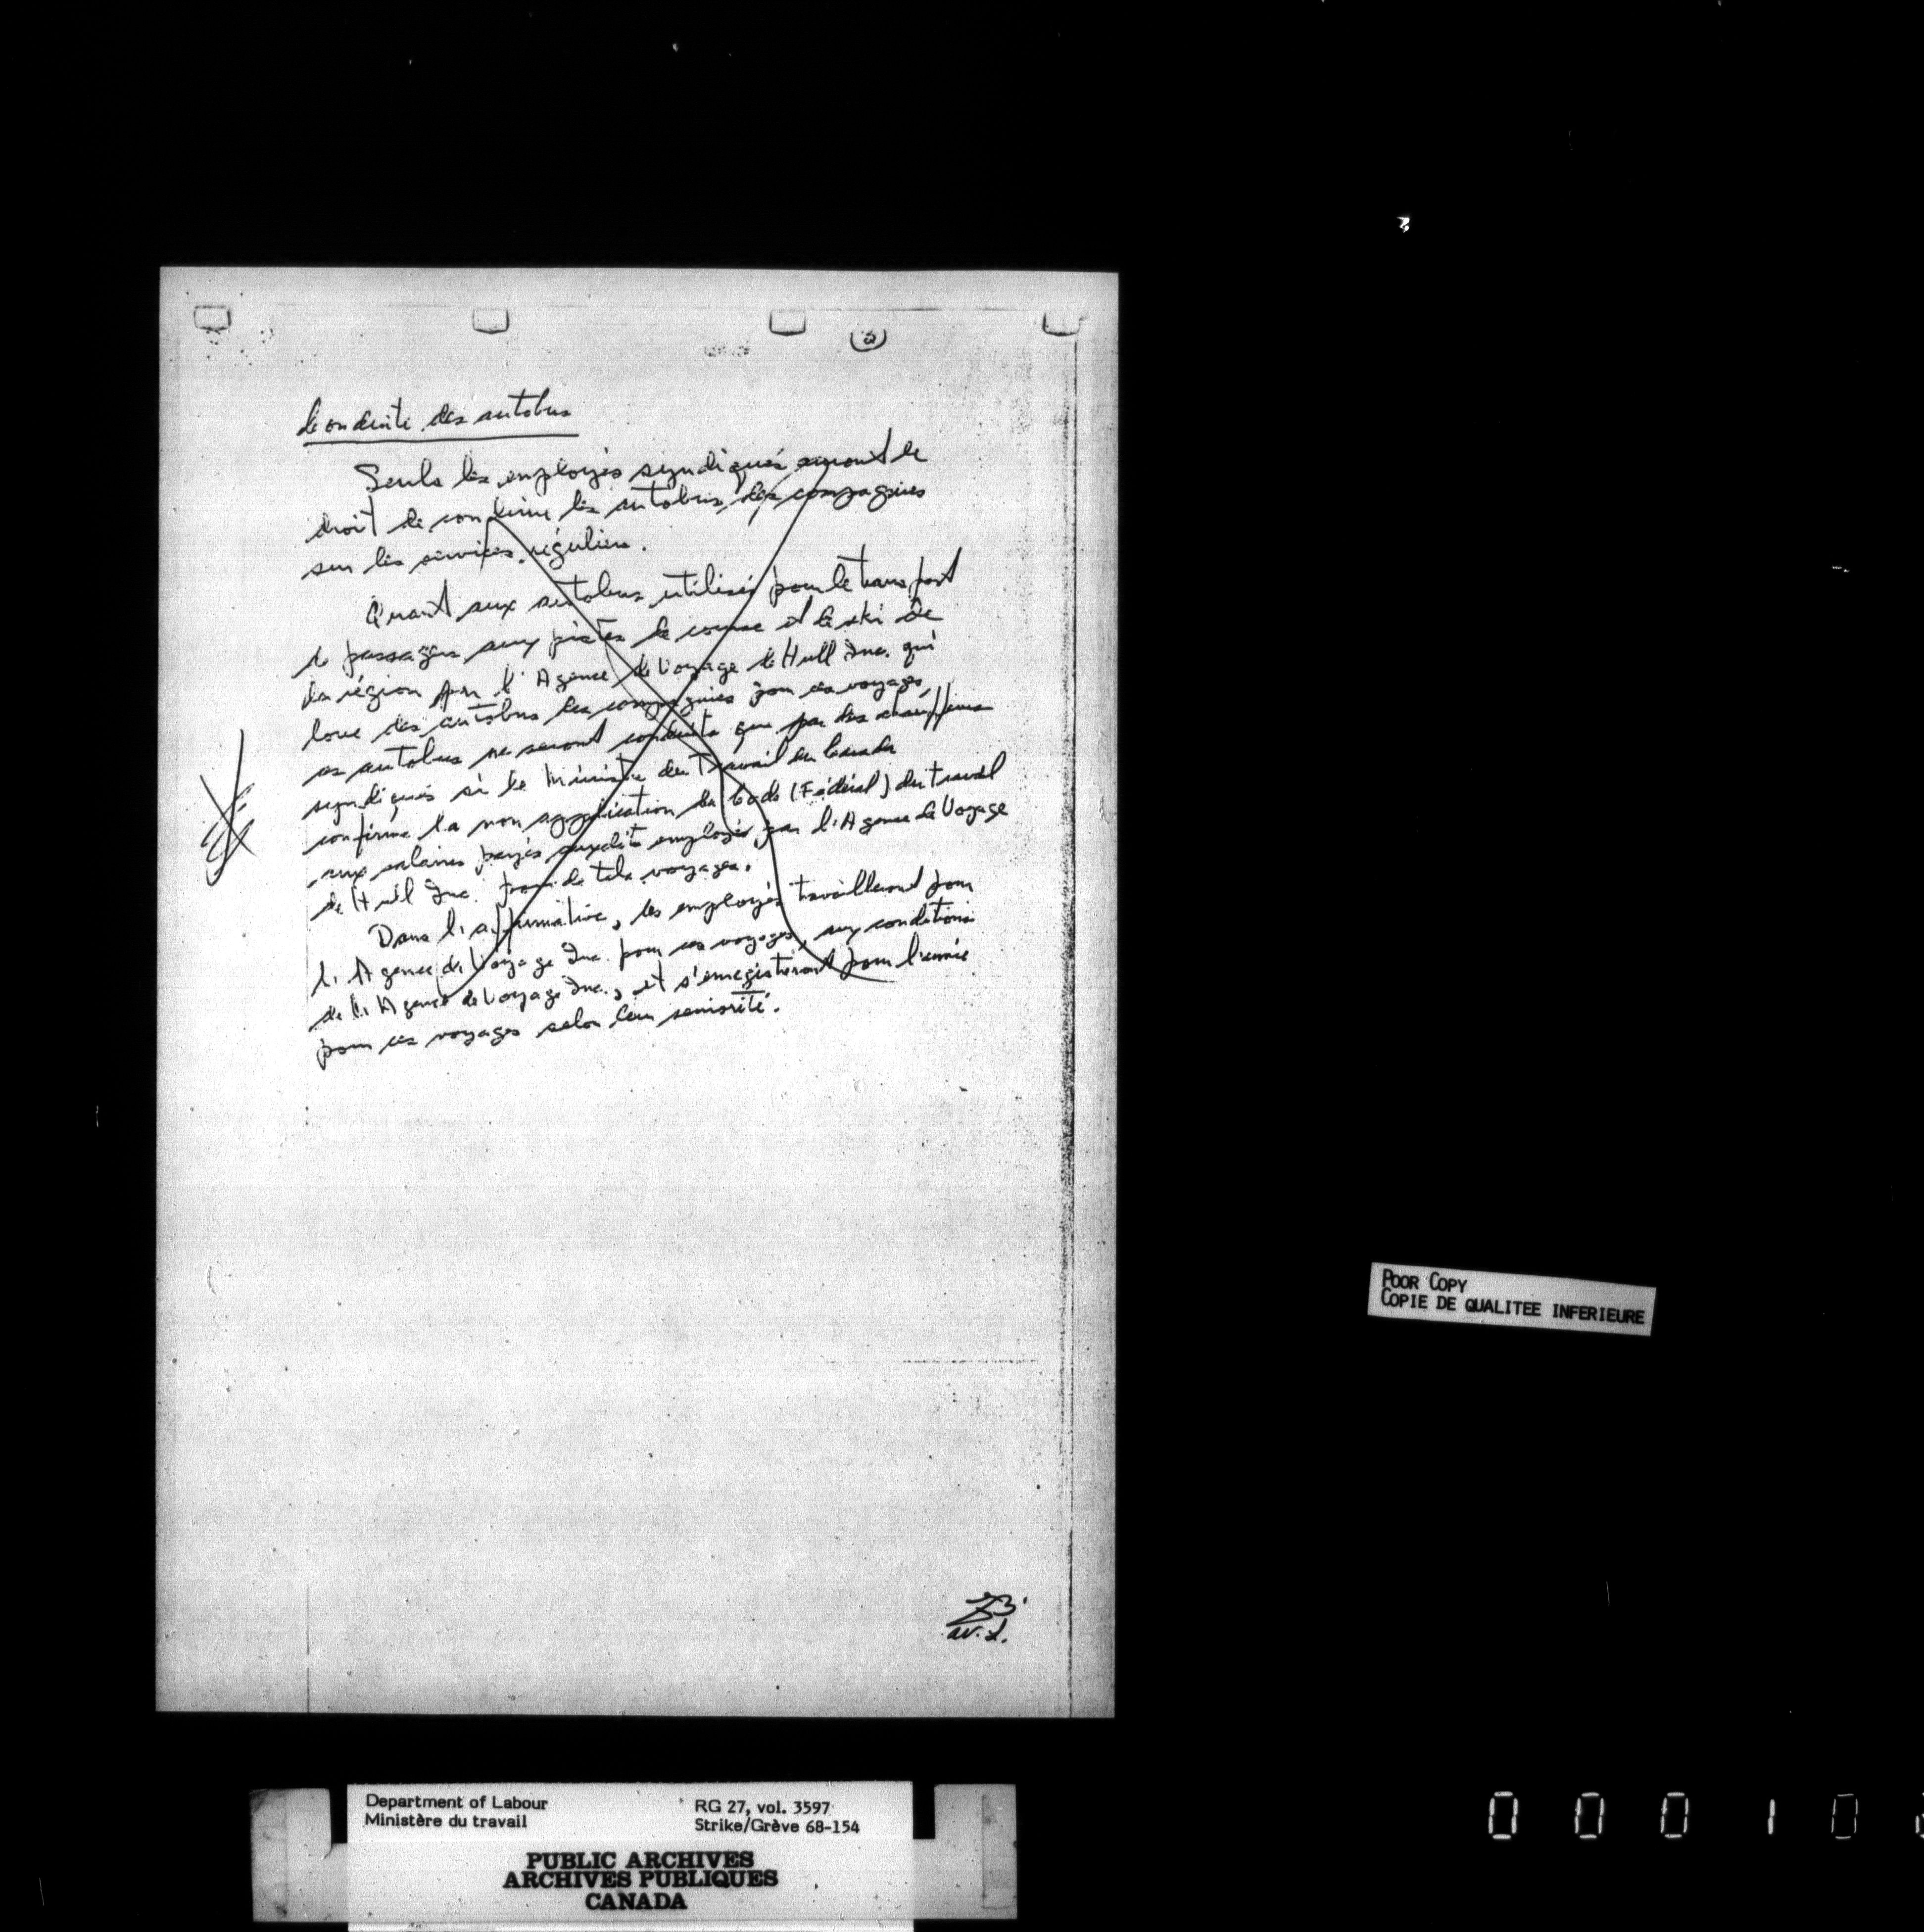 2
Conduite des autobus
Seuls les employés syndiqués auront le
droit de conduire les autobus des compagnies
sur les services réguliers.
Quant aux autobus utilisés pour le transport
de passagers aux pistes de course et de ski de
la région par l'Agence de Voyage de Hull Inc. qui
loue des autobus des compagnies pour ces voyages,
ces autobus ne seront conduits que par des chauffeurs
syndiqués si le Ministre du Travail du Canada
confirme la non application du Code (Fédéral) du travail
aux salaires payés auxdits employés par l'Agence de Voyage
de Hull Inc. pour de tels voyages.
Dans l'affirmative, les employés travailleront pour
l'Agence de Voyage Inc. pour ces voyages, aux conditions
de l'Agence de Voyage Inc., et s'enregistreront pour l'année
pour ces voyages selon leur seniorité.
av. L.
POOR COPY
COPIE DE QUALITEE INFERIEURE
Department of Labour
Ministère du travail
RG 27, vol. 3597
Strike/Grève 68-154
PUBLIC ARCHIVES
ARCHIVES PUBLIQUES
CANADA
0 0 0 1 0